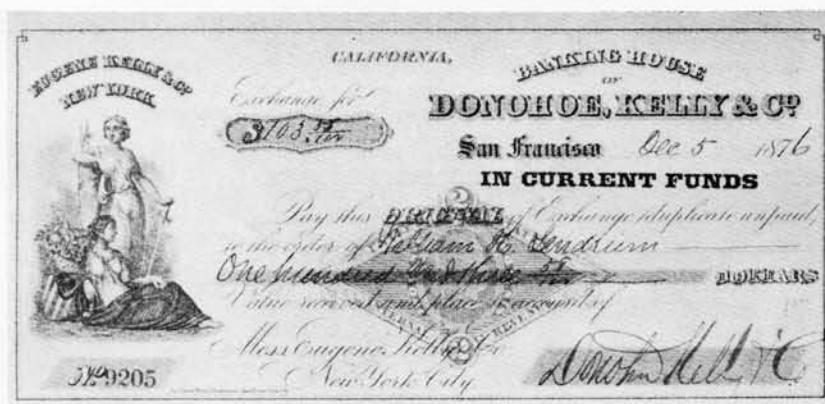 EUGENE KELLY & Co
NEW YORK.
CALIFORNIA,
BANKING HOUSE
OF
DONOHOE, KELLY & Co
Exchange for
$103.55/100
San Francisco Dec 5 1876
IN CURRENT FUNDS
Pay this ORIGINAL of Exchange (duplicate unpaid)
to the order of William H.
One hundred and three 55/100 DOLLARS
Value received and place to account of
Mess Eugene Kelly & Co
New York City
Donohoe Kelly & Co
No 9205